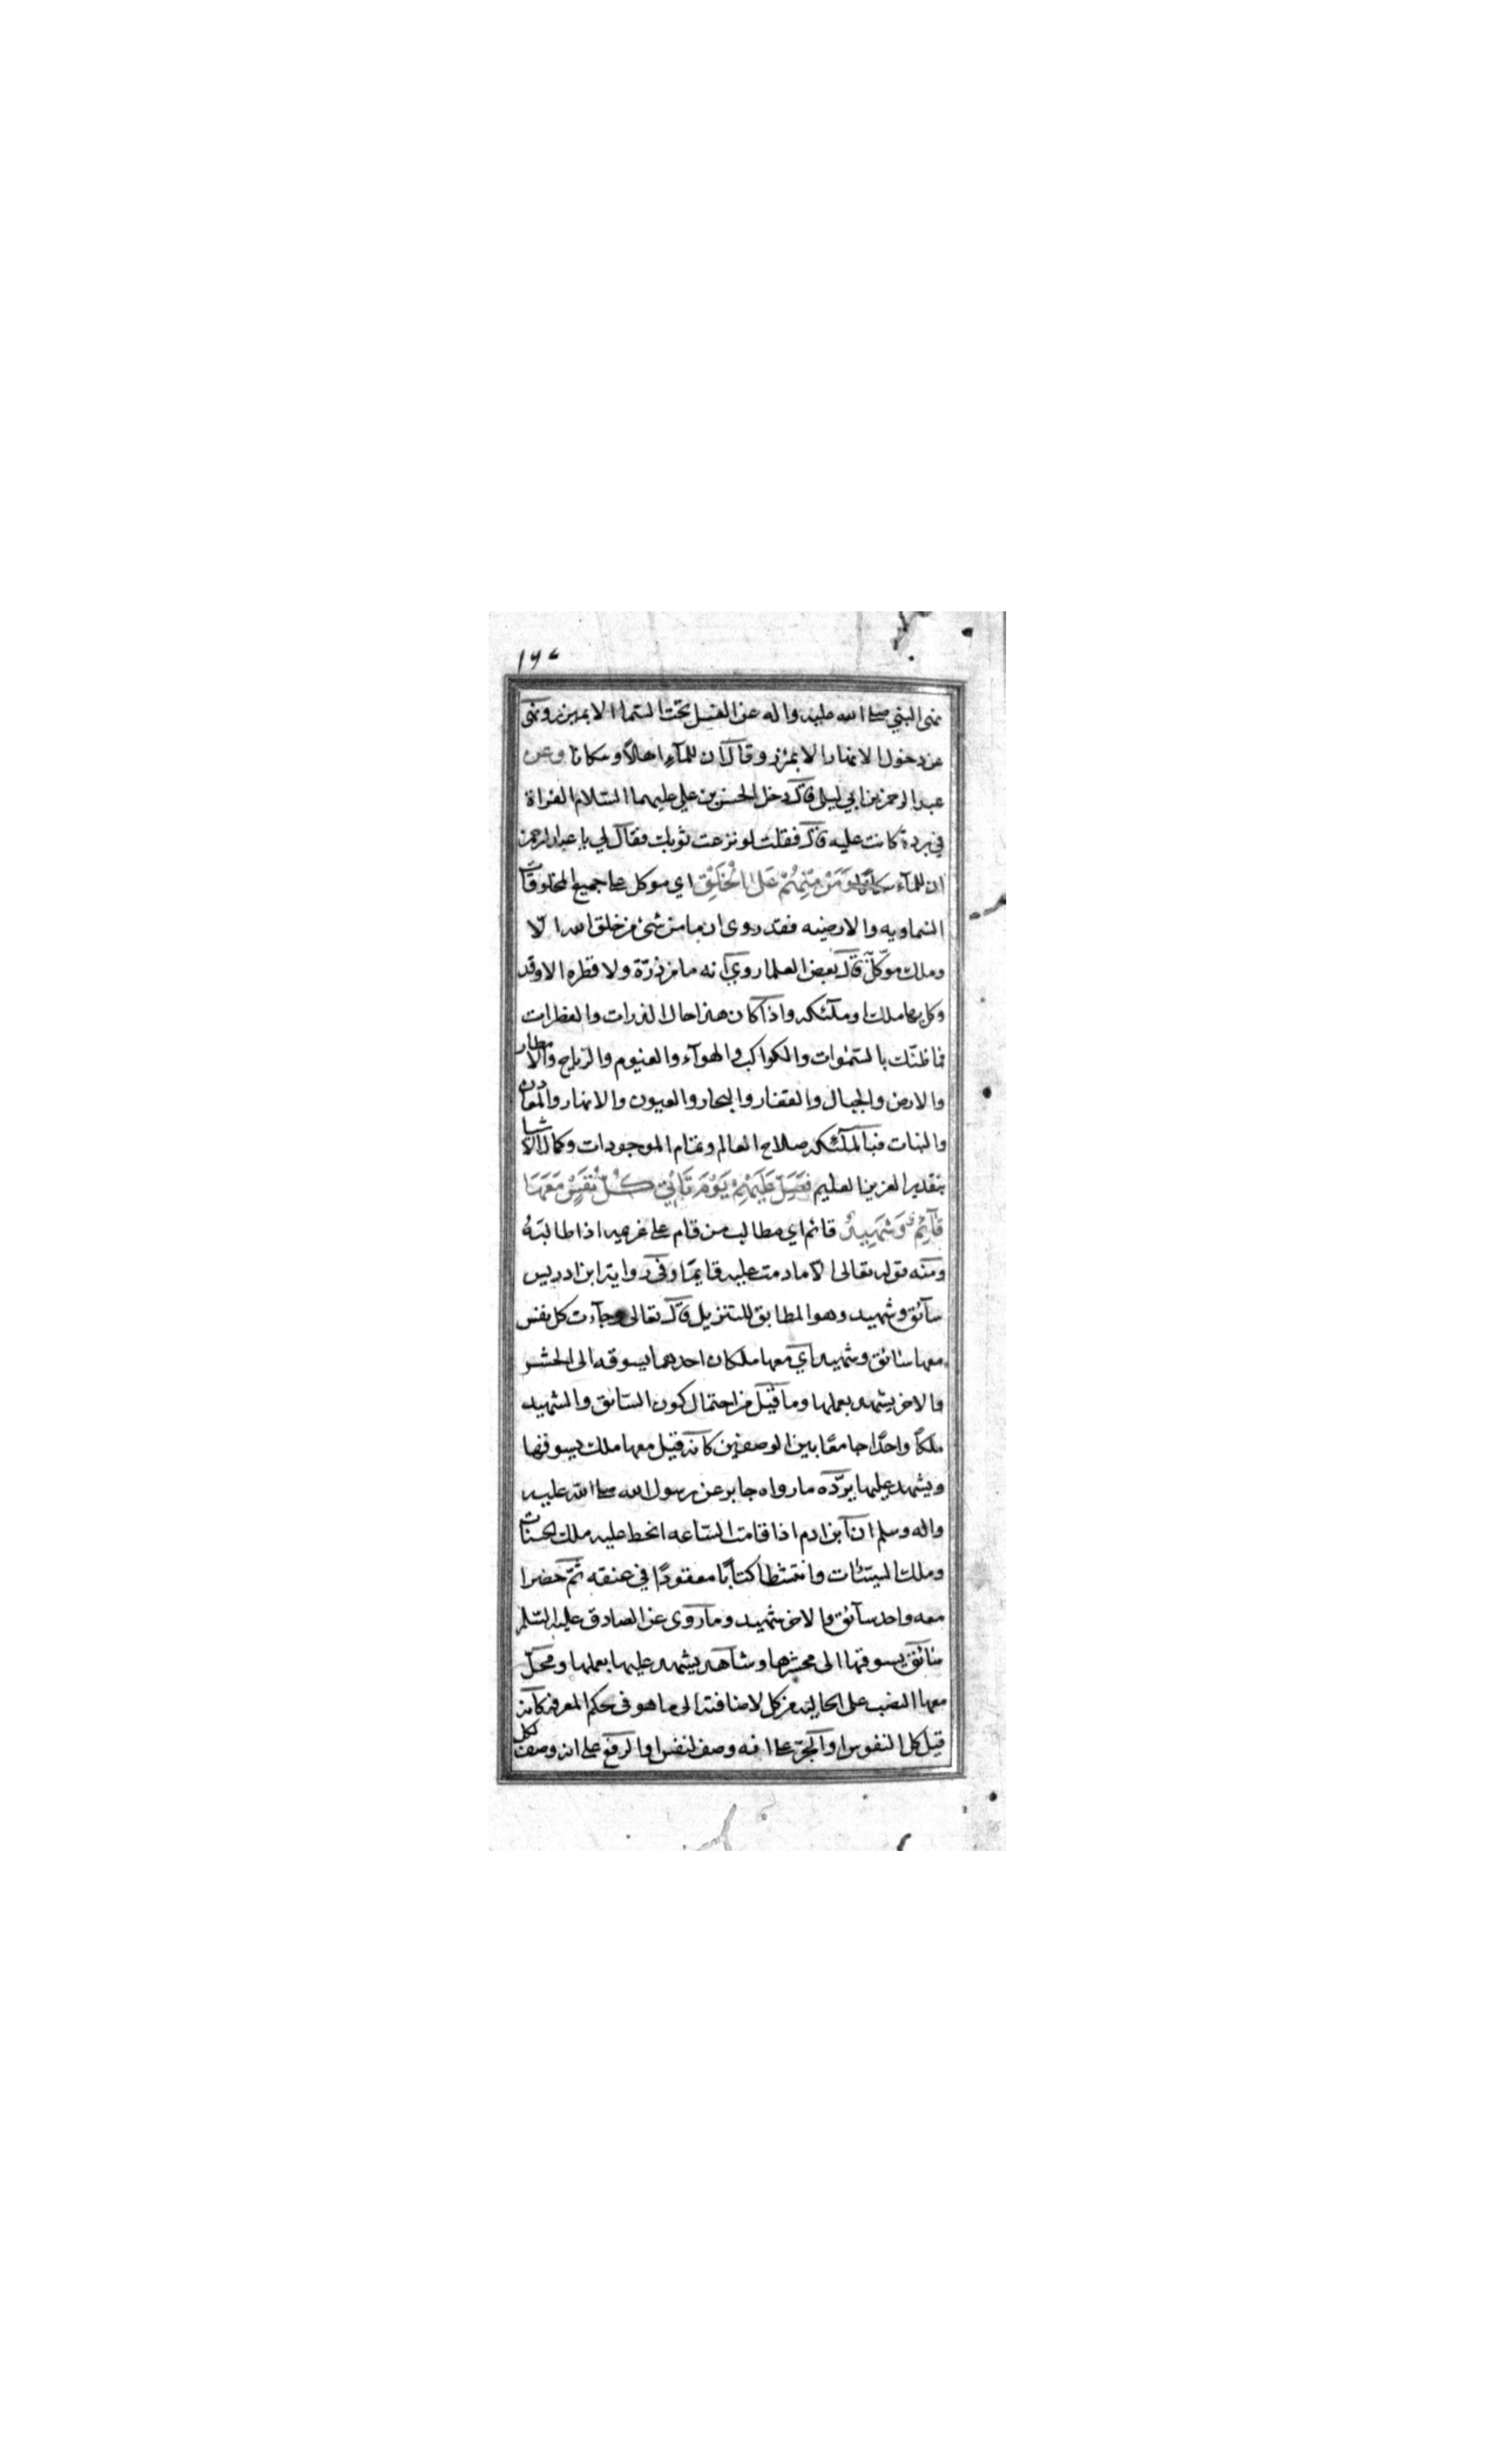 ١٦٧
نهى النبي صلى الله عليه واله عن الغسل تحت السما الا بمئزر ونهى
عن دخول الانهار الا بمئزر وقال ان للمآء اهلاً وسكانا وعن
عبد الرحمن بن ابي ليلى قال دخل الحسن بن علي عليهما السلام الفراة
في بردة كانت عليه قال فقلت لو نزعت ثوبك فقال لي يا عبد الرحمن
ان للمآء سكانا وَمَنْ مِنْهُمْ عَلَى الْخَلْقِ اي موكل على جميع المخلوقات
السماويه والارضيه فقد روى ان ما من شئ من خلق الله الّا
وملك موكّل قال بعض العلما روي انه ما من ذرّة ولا قطره الا وقد
وكل بها ملك او ملآئكه واذا كان هذا حال الذرات والقطرات
فما ظنّك بالسّموات والكواكب والهوآء والغيوم والرياح والامطار
والارض والجبال والقفار والبحار والعيون والانهار والمعادن
والنبات فبالملآئكه صلاح العالم وتمام الموجودات وكمال الاشيا
بتقدير العزيز العليم فَصَلِّ عَلَيْهِمْ يَوْمَ تَأْتِي كُلُّ نَفْسٍ مَعَهَا
قَآئِمٌ وَشَهِيدٌ قائم اي مطالب من قام على غريمه اذا طالبَهُ
ومنه قوله تعالى الّا ما دمت عليه قايمًا وفي روايه ابن ادريس
سآئق وشهيد وهو المطابق للتنزيل قال تعالى وجآءت كل نفس
معها سائق وشهيد اي معها ملكان احدهما يسوقه الى الحشر
والاخر يشهد بعملها وما قيل من احتمال كون السّائق والشهيد
ملكًا واحدًا جامعًا بين الوصفين كانه قيل معها ملك يسوقها
ويشهد عليها يردّه ما رواه جابر عن رسول الله صلى الله عليه
واله وسلم ان ابن ادم اذا قامت السّاعه انحط عليه ملك الحسنات
وملك السيّئات وانتشطا كتابًا معقودًا في عنقه ثمّ حضرا
معه واحد سآئق والاخر شهيد وما روى عن الصادق عليه السّلم
سائق يسوقها الى محشرها وشاهد يشهد عليها بعملها ومحلّ
معها النصب على الحاليه من كل لاضافته الى ما هو في حكم المعرفه كانه
قيل كل النفوس او الجرّ على انه وصف لنفس او الرفع على انه وصف لكل